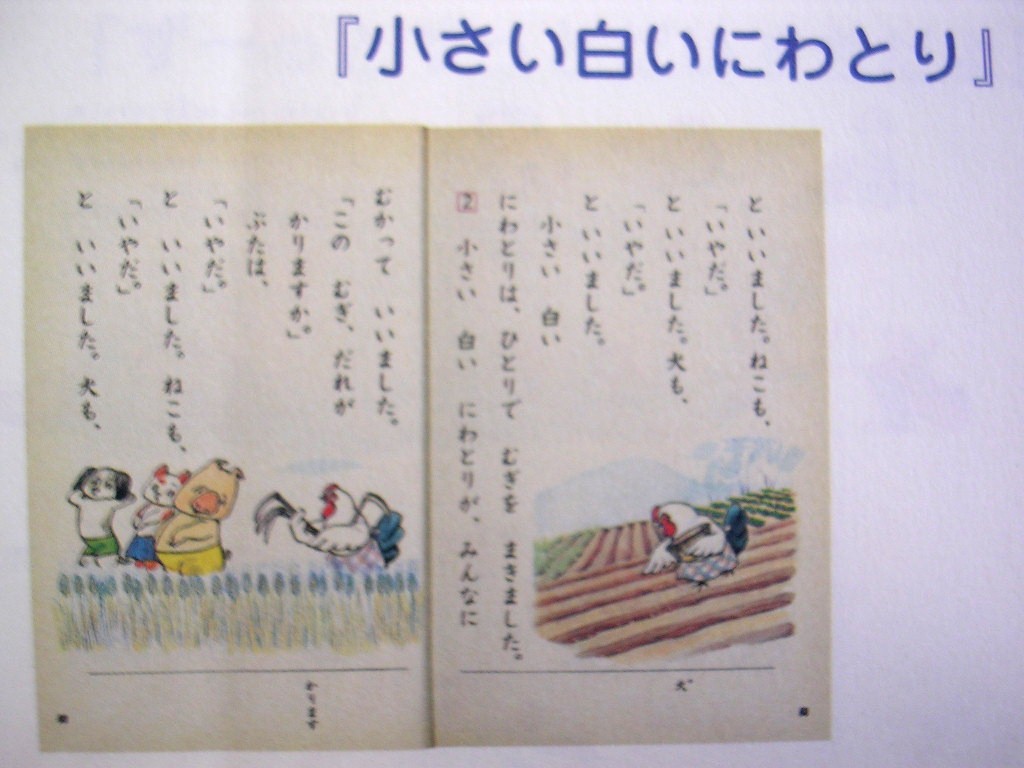 『小さい白いにわとり』
と いいました。ねこも、
「いやだ。」
と いいました。犬も、
「いやだ。」
と いいました。
小さい 白い
にわとりは、ひとりで むぎを まきました。
2 小さい 白い にわとりが、みんなに
犬
むかって いいました。
「この むぎ、だれが
かりますか。」
ぶたは、
「いやだ。」
と いいました。 ねこも、
「いやだ。」
と いいました。 犬も、
かります